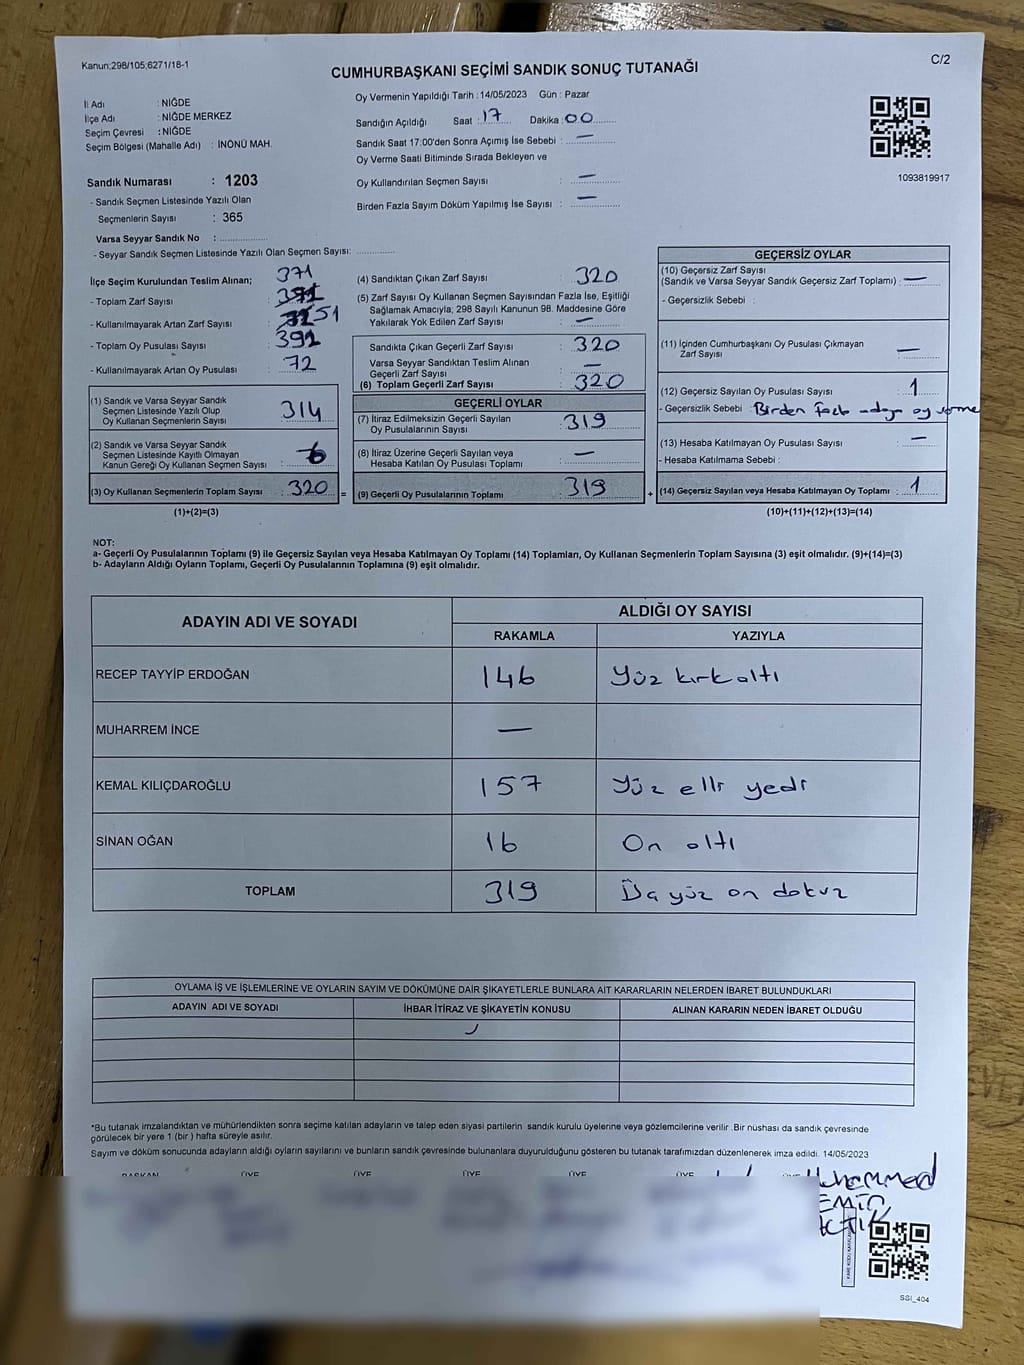 Kanun:298/105;6271/18-1
C/2
CUMHURBAŞKANI SEÇİMİ SANDIK SONUÇ TUTANAĞI
İl Adı : NİĞDE
İlçe Adı : NİĞDE MERKEZ
Seçim Çevresi : NİĞDE
Seçim Bölgesi (Mahalle Adı) : İNÖNÜ MAH.
Oy Vermenin Yapıldığı Tarih :14/05/2023 Gün : Pazar
Sandığın Açıldığı Saat :17 Dakika :00
Sandık Saat 17:00'den Sonra Açımış İse Sebebi : —
Oy Verme Saati Bitiminde Sırada Bekleyen ve
Oy Kullandırılan Seçmen Sayısı : —
Birden Fazla Sayım Döküm Yapılmış İse Sayısı : —
1093819917
Sandık Numarası : 1203
- Sandık Seçmen Listesinde Yazılı Olan
Seçmenlerin Sayısı : 365
Varsa Seyyar Sandık No :
- Seyyar Sandık Seçmen Listesinde Yazılı Olan Seçmen Sayısı:
İlçe Seçim Kurulundan Teslim Alınan; 371
- Toplam Zarf Sayısı :
- Kullanılmayarak Artan Zarf Sayısı : 51
- Toplam Oy Pusulası Sayısı :
- Kullanılmayarak Artan Oy Pusulası : 72
(1) Sandık ve Varsa Seyyar Sandık
Seçmen Listesinde Yazılı Olup
Oy Kullanan Seçmenlerin Sayısı : 314
(2) Sandık ve Varsa Seyyar Sandık
Seçmen Listesinde Kayıtlı Olmayan
Kanun Gereği Oy Kullanan Seçmen Sayısı : 6
(3) Oy Kullanan Seçmenlerin Toplam Sayısı : 320 =
(1)+(2)=(3)
(4) Sandıktan Çıkan Zarf Sayısı : 320
(5) Zarf Sayısı Oy Kullanan Seçmen Sayısından Fazla İse, Eşitliği
Sağlamak Amacıyla; 298 Sayılı Kanunun 98. Maddesine Göre
Yakılarak Yok Edilen Zarf Sayısı : —
Sandıkta Çıkan Geçerli Zarf Sayısı : 320
Varsa Seyyar Sandıktan Teslim Alınan
Geçerli Zarf Sayısı : —
(6) Toplam Geçerli Zarf Sayısı : 320
GEÇERLİ OYLAR
(7) İtiraz Edilmeksizin Geçerli Sayılan
Oy Pusulalarının Sayısı : 319
(8) İtiraz Üzerine Geçerli Sayılan veya
Hesaba Katılan Oy Pusulası Toplamı : —
(9) Geçerli Oy Pusulalarının Toplamı : 319 +
GEÇERSİZ OYLAR
(10) Geçersiz Zarf Sayısı
(Sandık ve Varsa Seyyar Sandık Geçersiz Zarf Toplamı) : —
- Geçersizlik Sebebi :
(11) İçinden Cumhurbaşkanı Oy Pusulası Çıkmayan
Zarf Sayısı : —
(12) Geçersiz Sayılan Oy Pusulası Sayısı : 1
- Geçersizlik Sebebi : Birden fazla adaya oy verme
(13) Hesaba Katılmayan Oy Pusulası Sayısı : —
- Hesaba Katılmama Sebebi :
(14) Geçersiz Sayılan veya Hesaba Katılmayan Oy Toplamı : 1
(10)+(11)+(12)+(13)=(14)
NOT:
a- Geçerli Oy Pusulalarının Toplamı (9) ile Geçersiz Sayılan veya Hesaba Katılmayan Oy Toplamı (14) Toplamları, Oy Kullanan Seçmenlerin Toplam Sayısına (3) eşit olmalıdır. (9)+(14)=(3)
b- Adayların Aldığı Oyların Toplamı, Geçerli Oy Pusulalarının Toplamına (9) eşit olmalıdır.
ADAYIN ADI VE SOYADI ALDIĞI OY SAYISI
RAKAMLA YAZIYLA
RECEP TAYYİP ERDOĞAN 146 Yüz kırk altı
MUHARREM İNCE —
KEMAL KILIÇDAROĞLU 157 Yüz elli yedi
SİNAN OĞAN 16 On altı
TOPLAM 319 yüz on dokuz
OYLAMA İŞ VE İŞLEMLERİNE VE OYLARIN SAYIM VE DÖKÜMÜNE DAİR ŞİKAYETLERLE BUNLARA AİT KARARLARIN NELERDEN İBARET BULUNDUKLARI
ADAYIN ADI VE SOYADI İHBAR İTİRAZ VE ŞİKAYETİN KONUSU ALINAN KARARIN NEDEN İBARET OLDUĞU
*Bu tutanak imzalandıktan ve mühürlendikten sonra seçime katılan adayların ve talep eden siyasi partilerin sandık kurulu üyelerine veya gözlemcilerine verilir .Bir nüshası da sandık çevresinde
görülecek bir yere 1 (bir ) hafta süreyle asılır.
Sayım ve döküm sonucunda adayların aldığı oyların sayılarını ve bunların sandık çevresinde bulunanlara duyurulduğunu gösteren bu tutanak tarafımızdan düzenlenerek imza edildi. 14/05/2023
BAŞKAN ÜYE ÜYE ÜYE ÜYE ÜYE ÜYE
Muhammed
EMİN
SSI_404